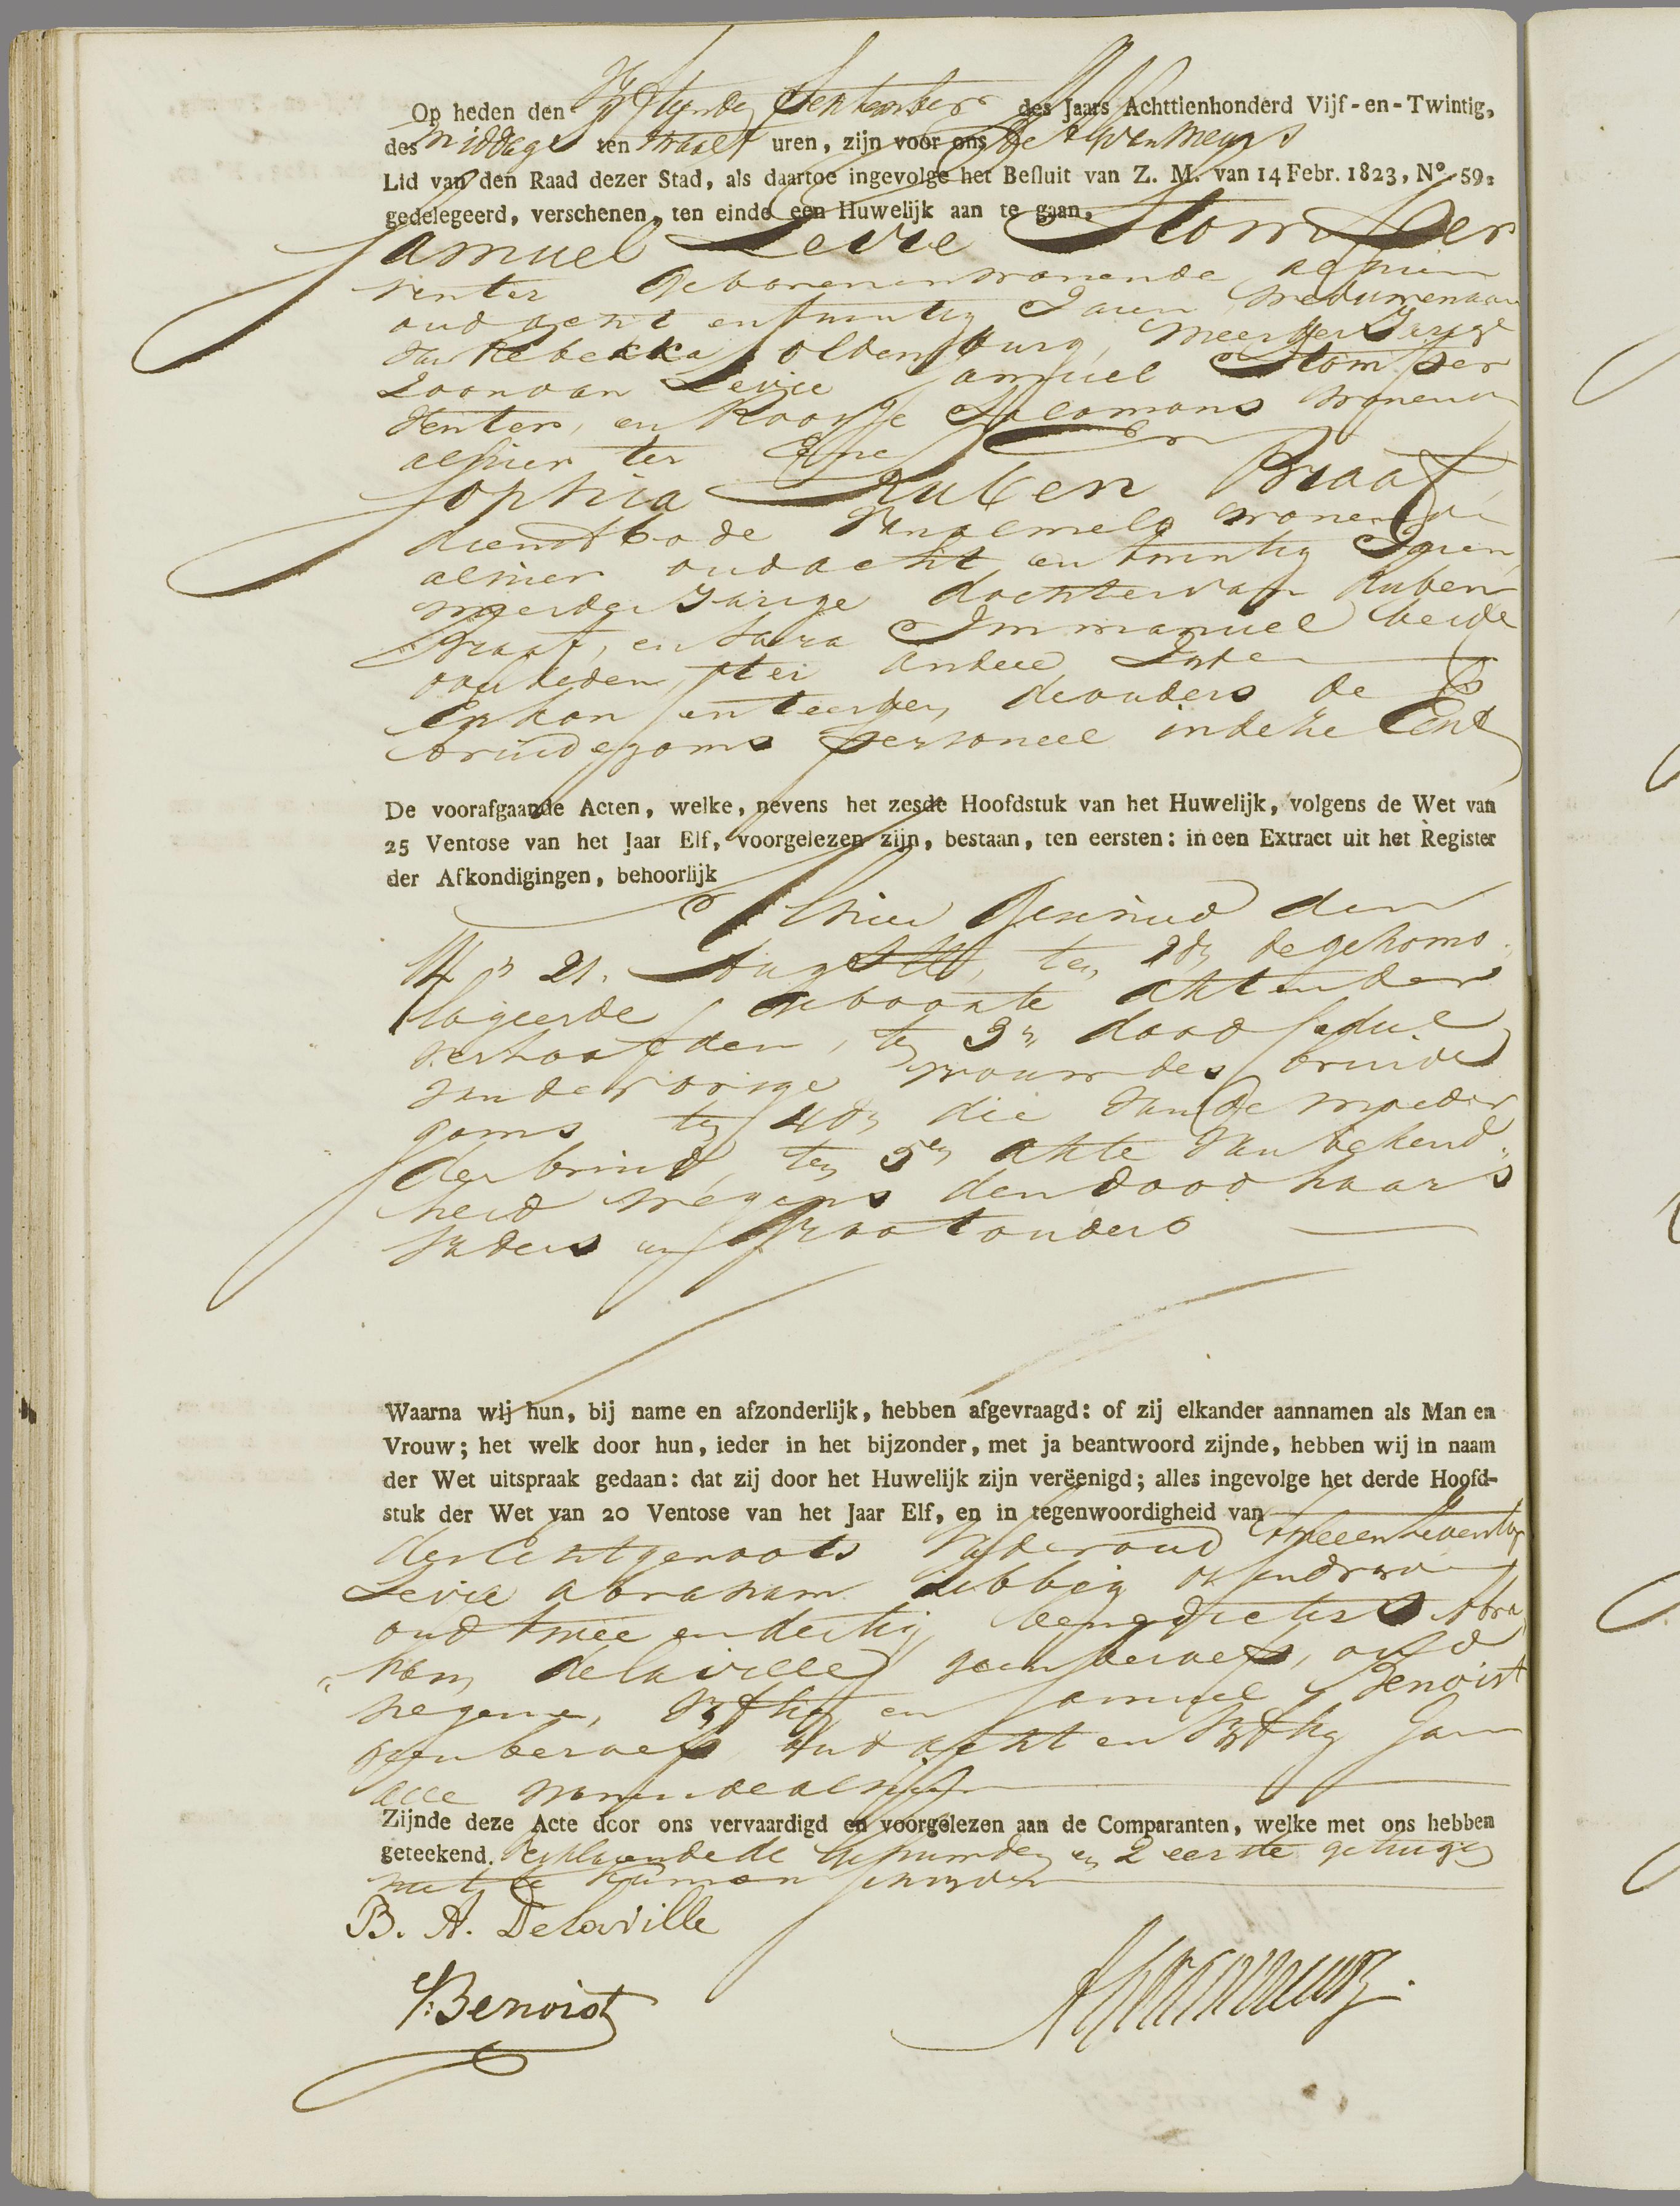 Op heden den Vijftiende September des Jaars Achttienhonderd Vijf-en-Twintig,
des middags ten twaalf uren, zijn voor ons
Lid van den Raad dezer Stad, als daartoe ingevolge het Besluit van Z. M. van 14 Febr. 1823, No. 59,
gedelegeerd, verschenen, ten einde een Huwelijk aan te gaan,
Samuel Levie Stomper
venter geboren en wonende alhier
oud acht en twintig Jaren weduwenaar
van Rebekka Oldenburg, meerder Jarige
Zoon van Levie Samuel Stomper
venter, en Roosje Salomons wonende
alhier ter Ene En
Sophia Ruben Praat,
dienstbode van wonende
alhier oud acht en twintig Jaren
meerder Jarige dochter van Ruben
Praat, en Sara Immanuel beide
overleden, ter andere Zyde
En consenteerden de ouders de
bruidegoms personeel in deze Echt
De voorafgaande Acten, welke, nevens het zesde Hoofdstuk van het Huwelijk, volgens de Wet van
25 Ventose van het Jaar Elf, voorgelezen zijn, bestaan, ten eersten: in een Extract uit het Register
der Afkondigingen, behoorlijk
Alhier Geschied den
14 n 21. Aug, ten 2dn de gehomo
logeerde geboorte akten der
verloofden, ten 3n dood sedul
van de vorige vrouw des bruide
goms ten 4dn die van de moeder
der bruid, ten 5en akte van bekend
heid wegens den dood haars
vaders en Grootouders
Waarna wij hun, bij name en afzonderlijk, hebben afgevraagd: of zij elkander aannamen als Man en
Vrouw; het welk door hun, ieder in het bijzonder, met ja beantwoord zijnde, hebben wij in naam
der Wet uitspraak gedaan: dat zij door het Huwelijk zijn verëenigd; alles ingevolge het derde Hoofd-
stuk der Wet van 20 Ventose van het Jaar Elf, en in tegenwoordigheid van
des Echtgenoots vader oud tweeenseventig
Levie Abraham
oud twee en dertig, Benedictus Abra
ham delaville geen beroep, oud
negen en vyftig en Samuel Benoist
geen beroep, oud acht en vyftig Jaren
alle wonende alhier
Zijnde deze Acte door ons vervaardigd en voorgelezen aan de Comparanten, welke met ons hebben
geteekend. verklarende de gehuwden en 2 eerste getuigen
niet te kunnen schryven
B. A. Delaville
S: Benoist